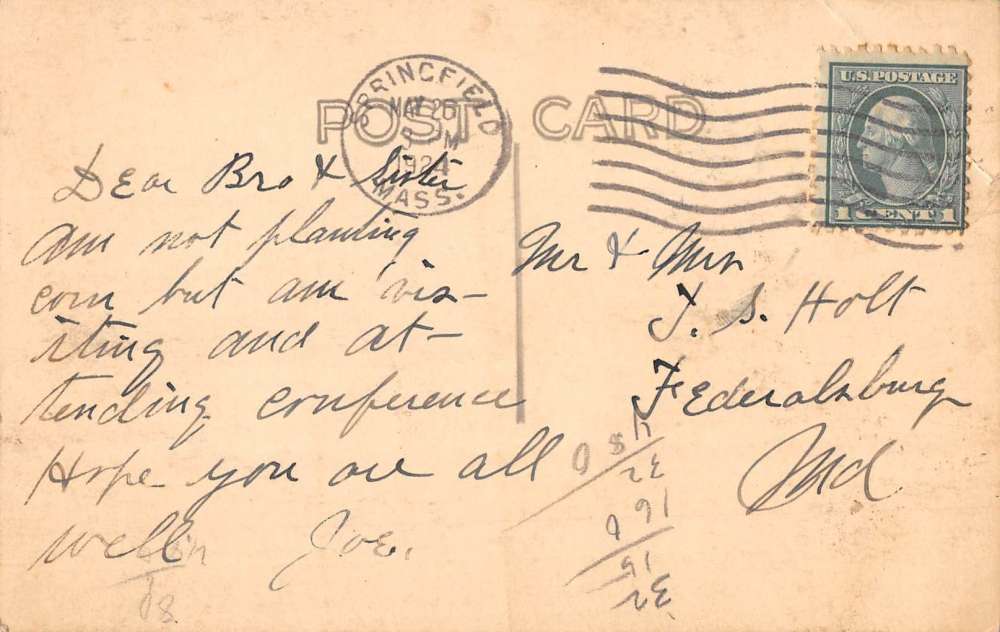 POST CARD
SPRINGFIELD
MAY 26
PM
MASS.
U.S. POSTAGE
1 CENT 1
Dear Bro & Sister
Am not planting
corn but am vis-
iting and at-
tending conference
Hope you are all
well Joe.
Mr & Mrs
T. S. Holt
Federalsburg
Md